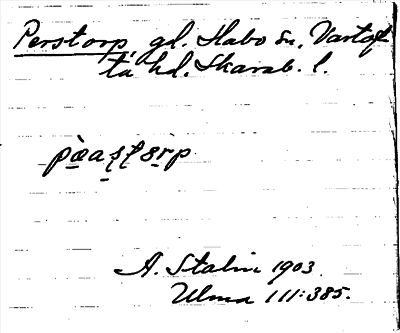 Perstorp, gd. Habo sn, Vartof-
ta hd. Skarab. l.
A. Stalin 1903.
Ulma 111:385.